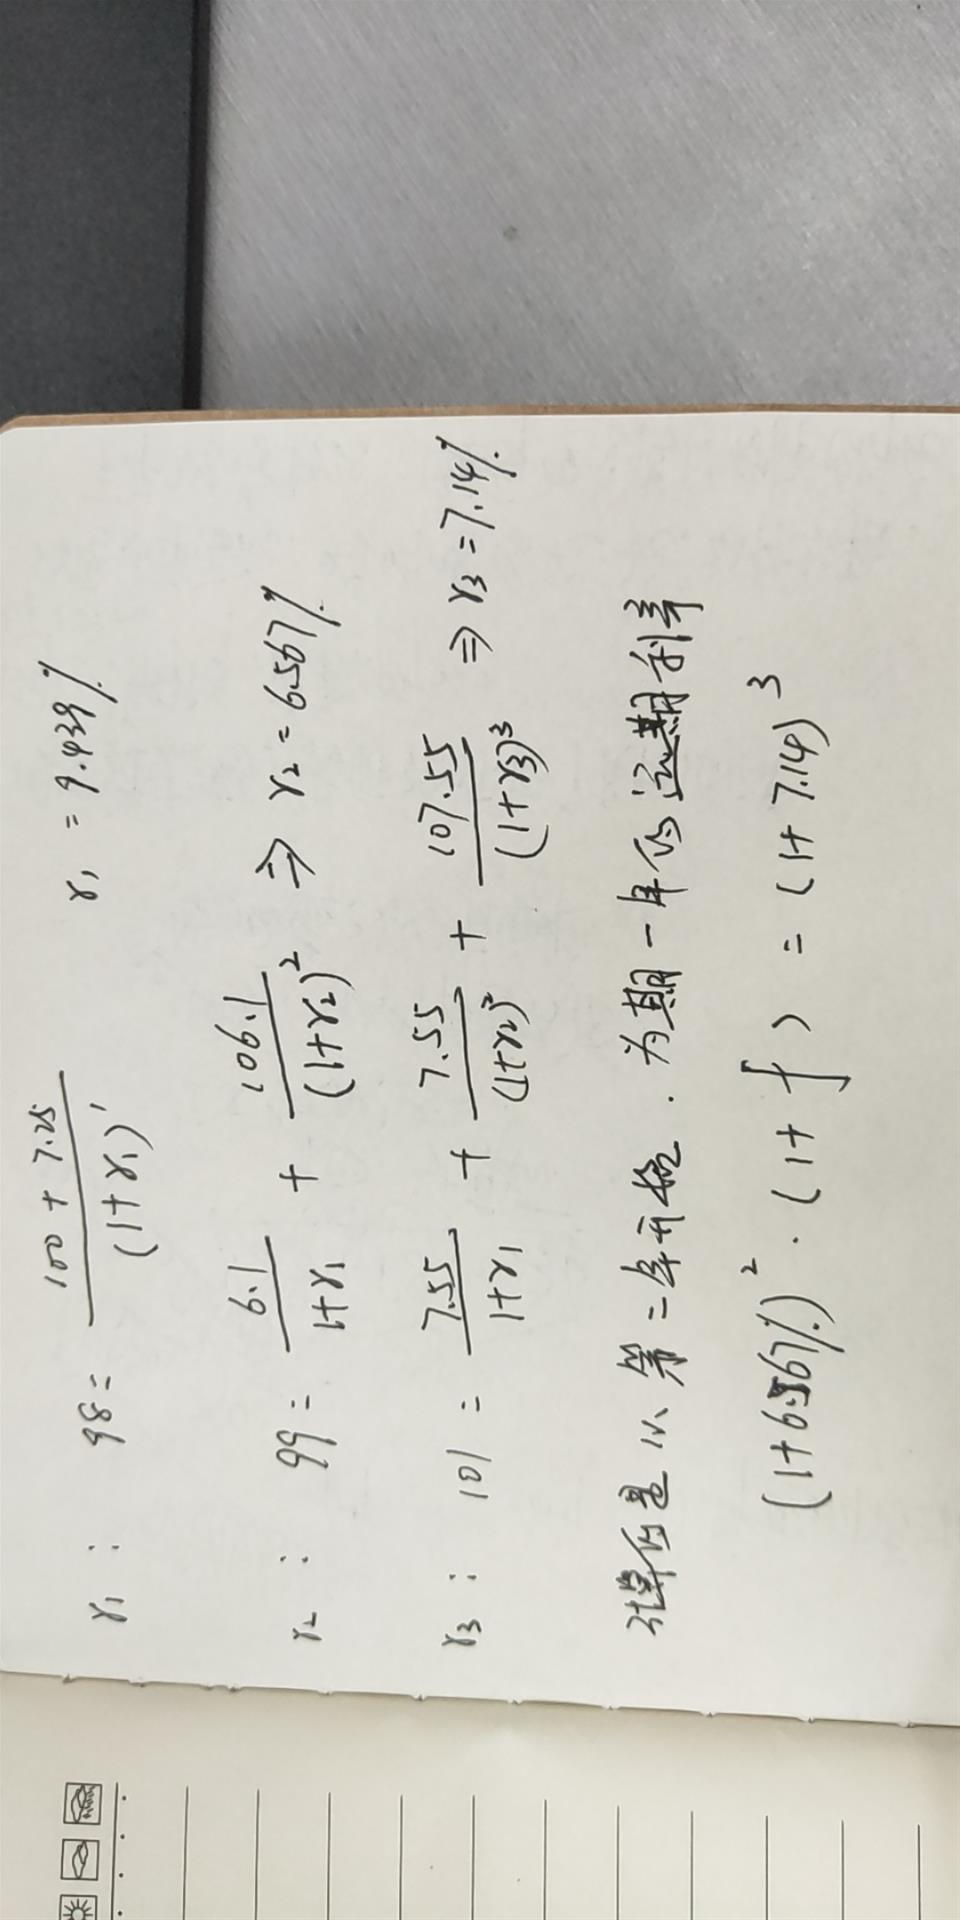 r₁ : 98 = (100 + 7.25)/(1+r₁)¹ r₁ = 9.439%
r₂ : 99 = 6.1/(1+r₁) + 106.1/(1+r₂)² ⇒ r₂ = 6.567%
r₃ : 101 = 7.55/(1+r₁) + 7.55/(1+r₂)² + 107.55/(1+r₃)³ ⇒ r₃ = 7.14%
计算的是从第二年开始.为期一年的远期利率
(1+6.567%)² · (1+f) = (1+7.14)³